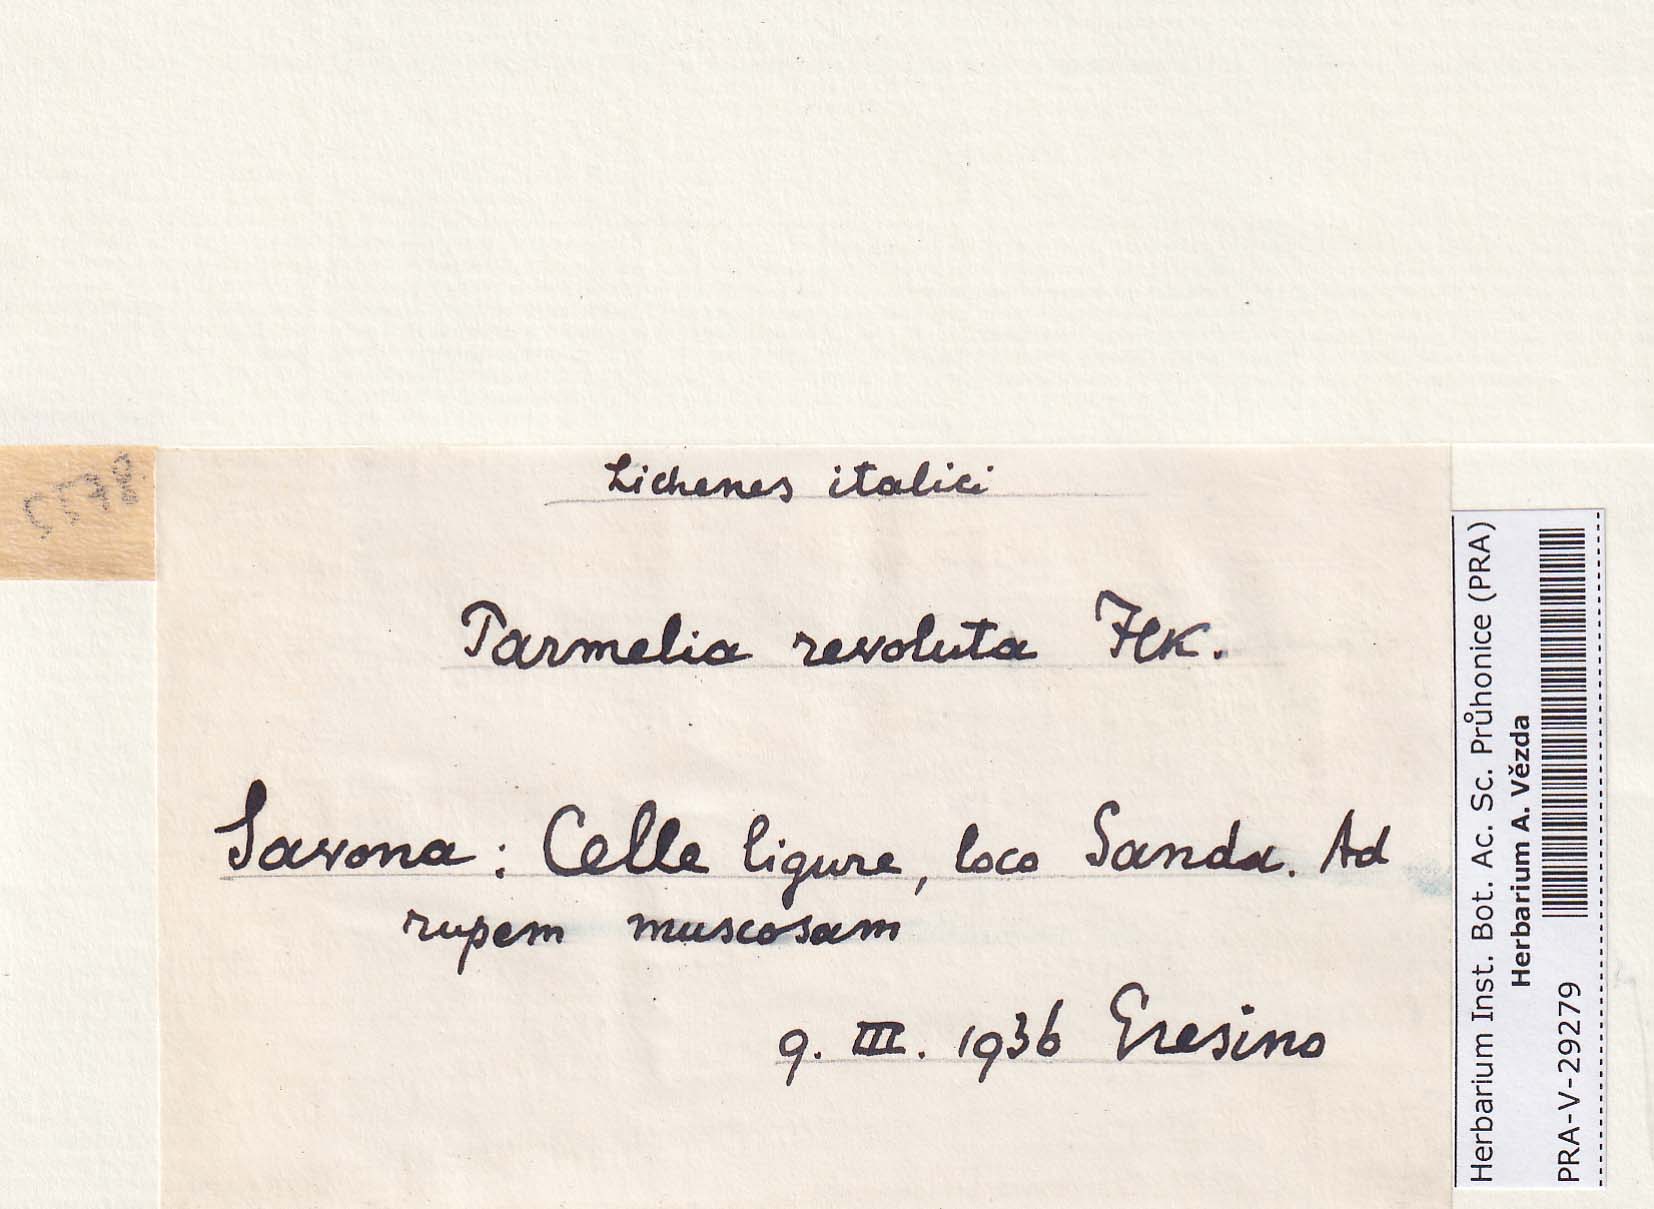 Lichenes italici
Parmelia revoluta Flk.
Savona: Celle ligure, loco Sanda. Ad
rupem muscosam
9. III. 1936 Gresino
Herbarium Inst. Bot. Ac. Sc. Průhonice (PRA)
Herbarium A. Vězda
PRA-V-29279